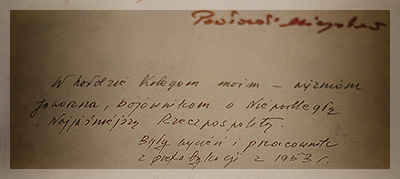 W hołdzie Kolegom moim – więźniom
Jaworzna, bojownikom o Niepodległą
Najjaśniejszą Rzeczpospolitą.
Były więzień i pracownik
z 1953 r.